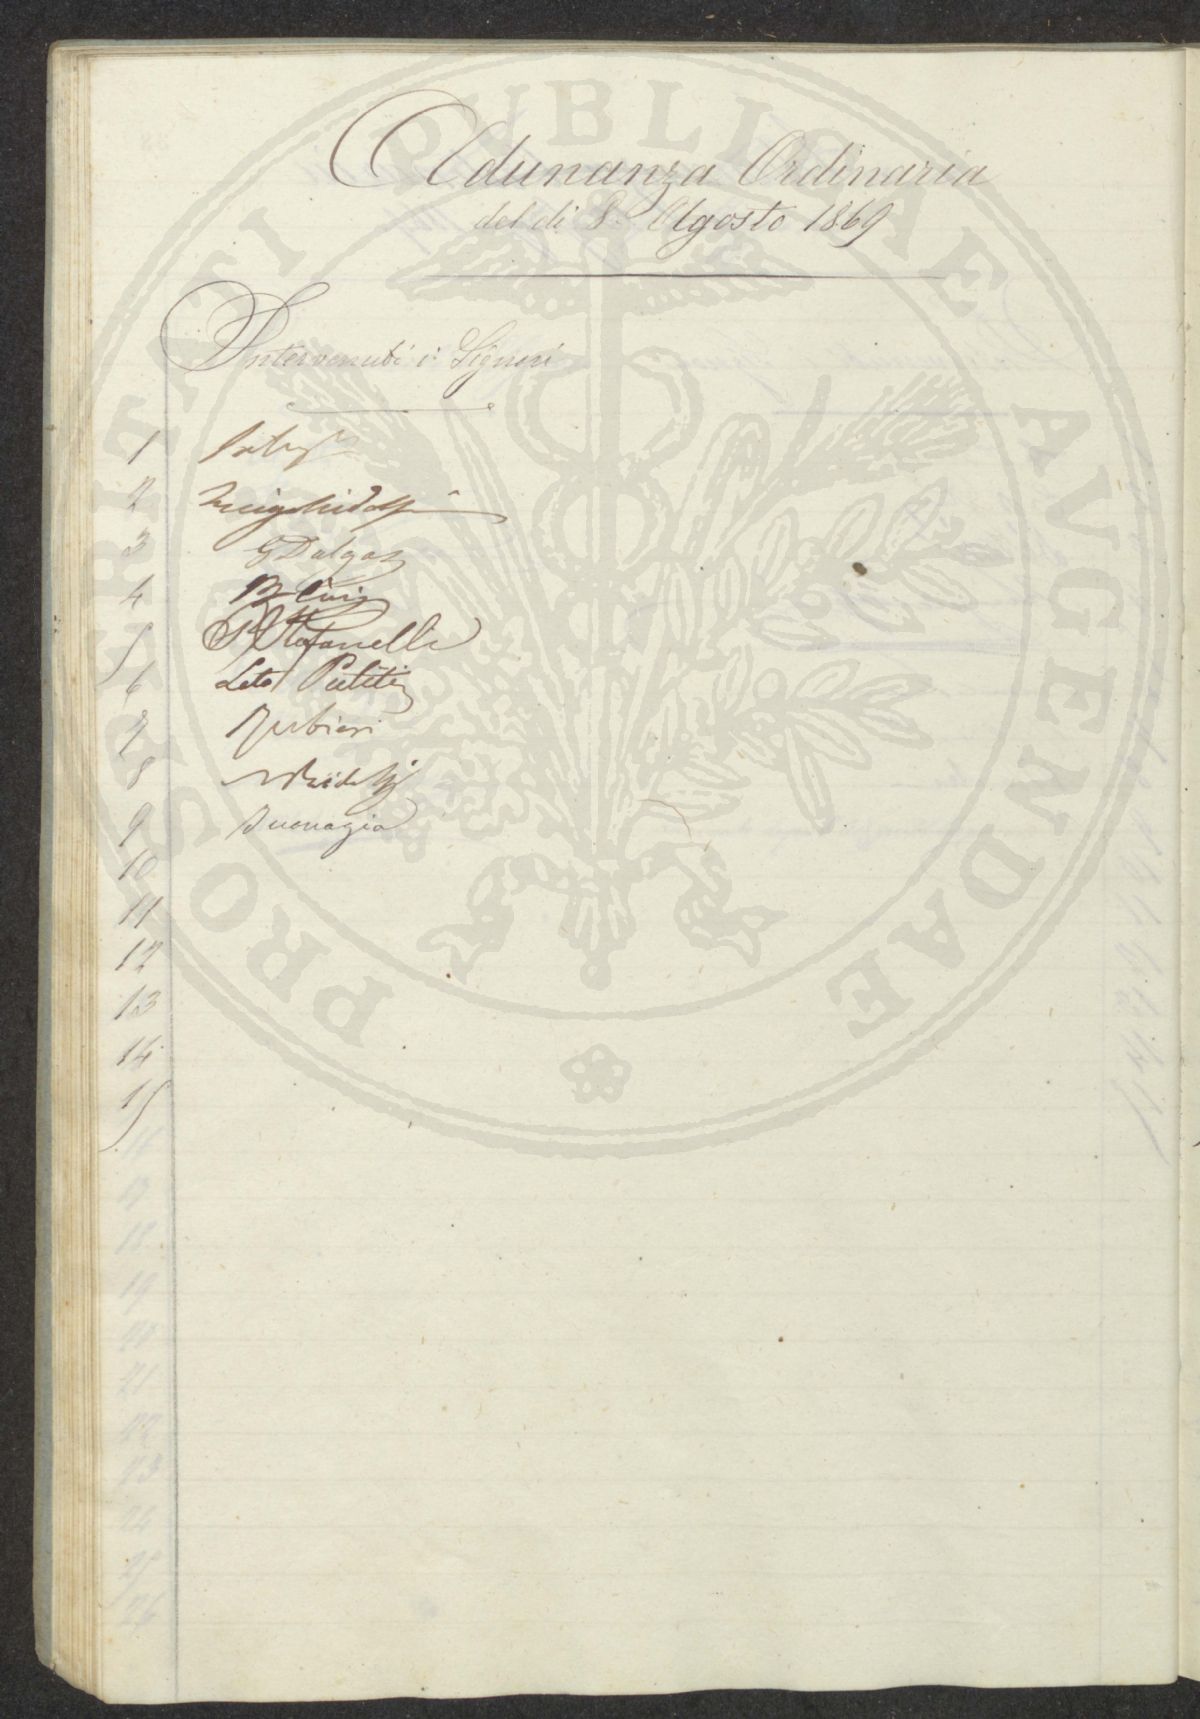 PROSPERITATI PUBLICAE AVGENDAE
Adunanza Ordinaria
del di 8 Agosto 1869
Intervenuti i Signori
1
2 Luigi Ridolfi
3 G Dalgas
4
5 P Stefanelli
6 Leto Puliti
7 Rubieri
8
9
10
11
12
13
14
15
16
17
18
19
20
21
22
23
24
25
26